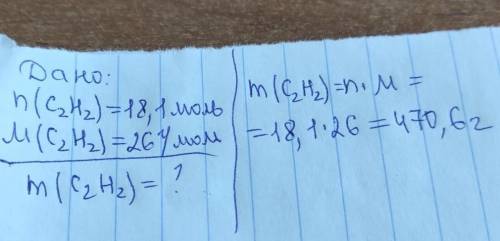 Дано:
n(C₂H₂)=18,1моль
M(C₂H₂)=26г/мол
m(C₂H₂)=?
m(C₂H₂)=n·M=
=18,1·26=470,6г